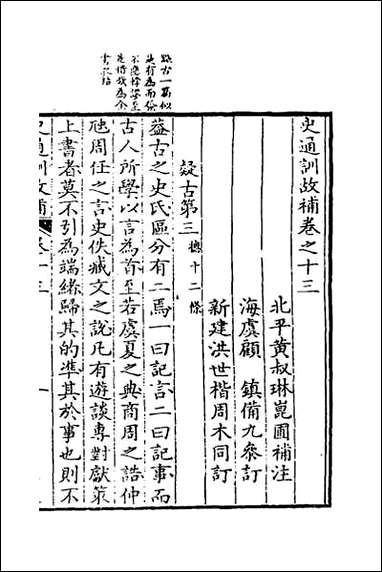 史通訓故補卷之十三
北平黃叔琳崑圃補注
海虞顧　鎮備九叅訂
新建洪世楷周木同訂
疑古第三總十二條
葢古之史氏區分有二焉一曰記言二曰記事而
古人所學以言為首至若虞夏之典商周之誥仲
虺周任之言史佚臧文之說凡有遊談專對獻策
上書者莫不引為端緒歸其的準其於事也則不
疑古一篇似
史通訓故補
卷十三
一